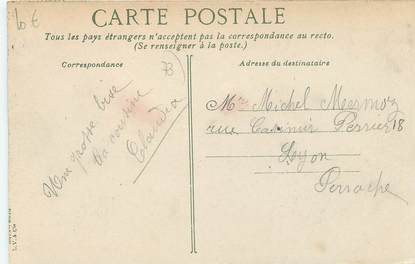 10 €
CARTE POSTALE
Tous les pays étrangers n'acceptent pas la correspondance au recto.
(Se renseigner à la poste.)
Correspondance
Adresse du destinataire
Une grosse bise
ta cousine
Claudia
Mr Michel Mermoz
rue Casimir Perrier 18
Lyon
Perrache